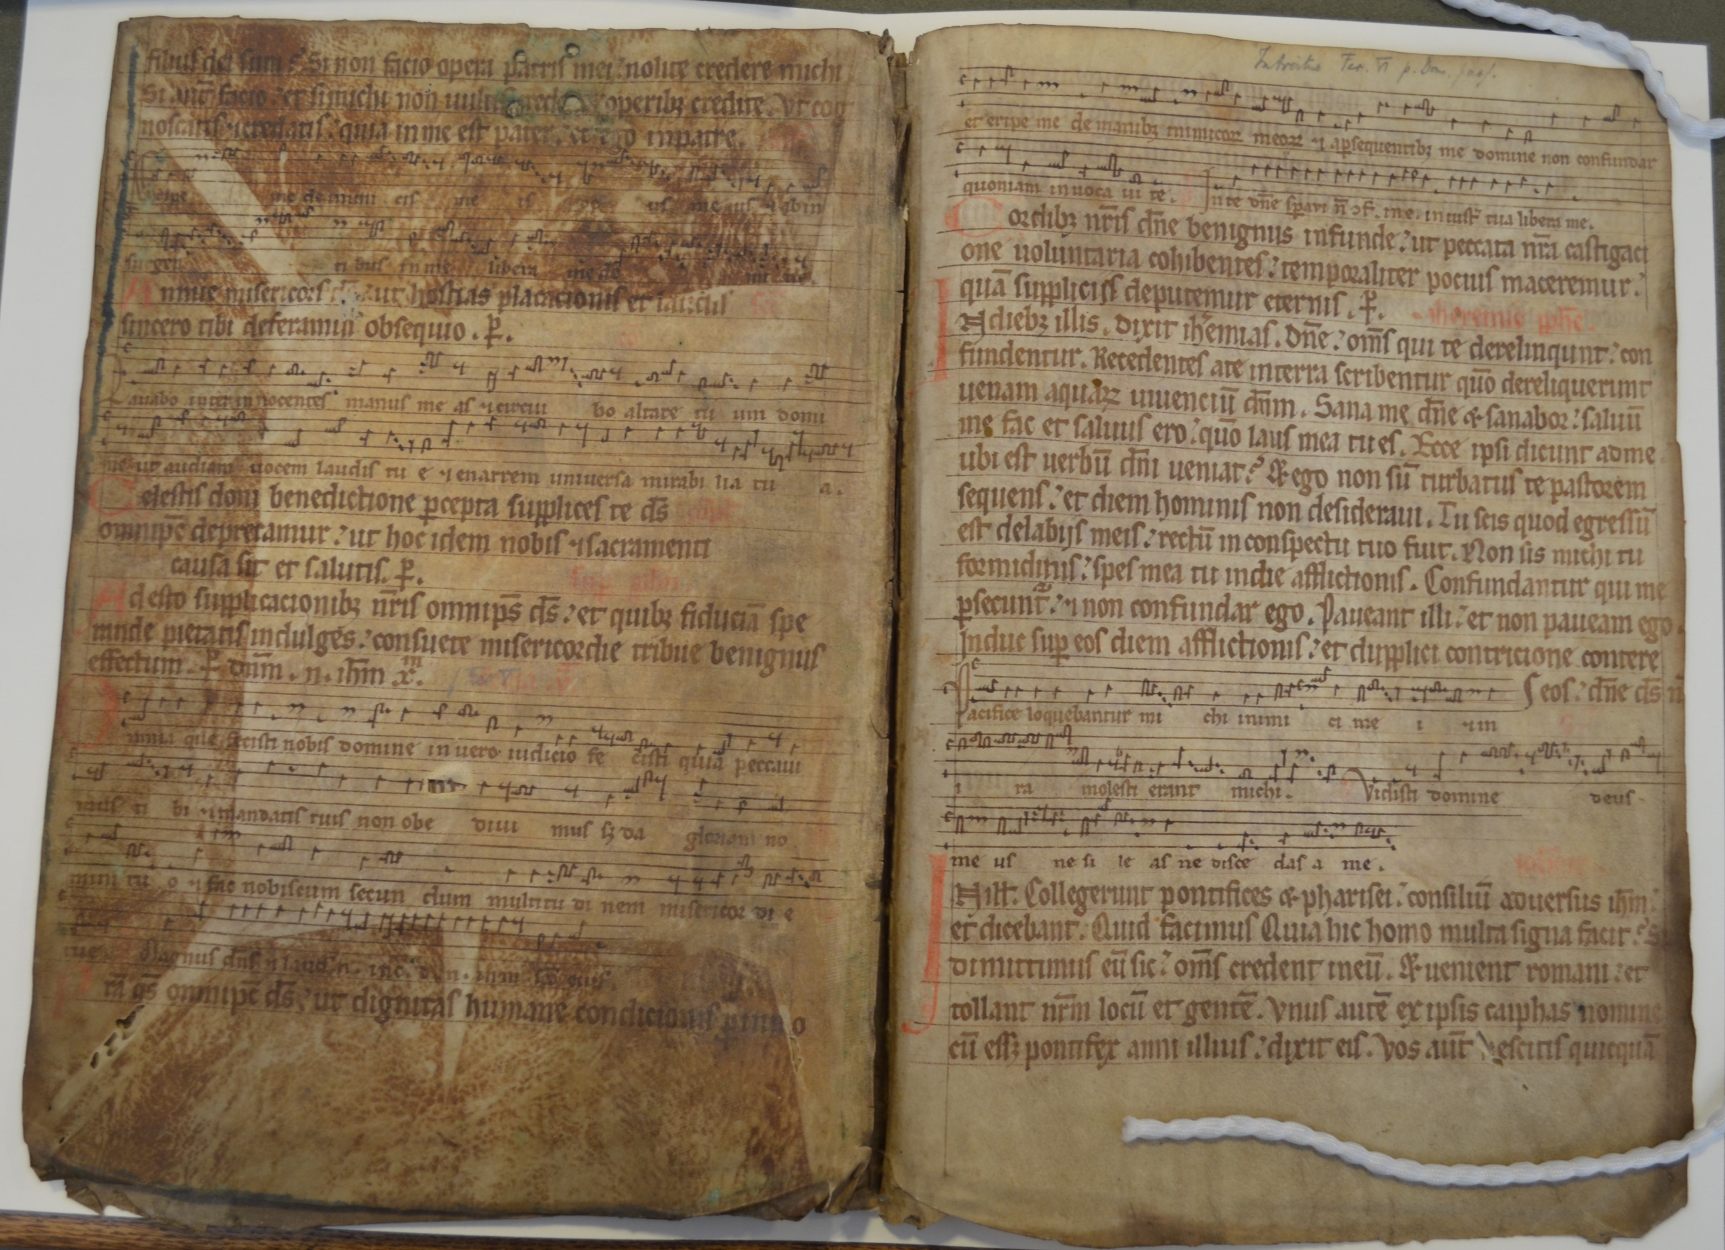 filius dei sum? Si non facio opera patris mei: nolite credere michi
Si aut̄ facio: et si michi non uultis credere: operibꝫ credite. Vt cog
noscatis ⁊ credatis: quia in me est pater. et ego in patre.
me de inimi cis me is
ti bus in me libera me do mi ne
Annue misericors d̄s: ut hostias placacionis et laudis
sincero tibi deferamus obsequio. P̄.
Lauabo inter innocentes manus me as ⁊ circui bo altare tu um domi
ne ut audiam uocem laudis tu e ⁊ enarrem uniuersa mirabi lia tu a.
Celestis doni benedictione ꝑcepta supplices te d̄s
omnip̄c deprecamur: ut hoc idem nobis ⁊ sacramenti
causa sit et salutis. P̄.
Adesto supplicacionibꝫ nr̄is omnip̄s d̄s: et quibꝫ fiduciā spe
rande pietatis indulges: consuete misericordie tribue benignus
effectum. P̄ dn̄m. n. ih̄m x̄.
Omnia que fecisti nobis domine in uero iudicio fe cisti quia peccaui
mus ti bi ⁊ mandatis tuis non obe diui mus sꝫ da gloriam no
mini tu o ⁊ fac nobiscum secun dum multitu di nem misericor di e
tue Magnus dn̄s ⁊ laud.
omnip̄c d̄s: ut dignitas humane condicionis
Introitus Fer. VI p. Dom. pass.
et eripe me de manibꝫ inimicoꝝ meoꝝ ⁊ a ꝑsequentibꝫ me domine non confundar
quoniam inuoca ui te. In te dn̄e sperau n̄ ꝯf. me. in iust̄ tua libera me.
Cordibꝫ nr̄is dn̄e benignus infunde: ut peccata nr̄a castigaci
one uoluntaria cohibentes: temporaliter pocius maceremur:
quā suppliciis deputemur eternis. P̄. iheremie ph̄e.
In diebꝫ illis. dixit ih̄emias. Dn̄e: om̄s qui te derelinqunt: con
fundentur. Recedentes a te in terra scribentur qūo dereliquerunt
uenam aquaꝝ uiuenciū dn̄m. Sana me dn̄e & sanabor: saluū
me fac et saluus ero: qūo laus mea tu es. Ecce ipsi dicunt ad me
ubi est uerbū dn̄i ueniat? & ego non sū turbatus te pastorem
sequens: et diem hominis non desideraui. Tu scis quod egressū
est de labijs meis: rectū in conspectu tuo fuit. Non sis michi tu
formidini: spes mea tu in die afflictionis. Confundantur qui me
ꝑsecunt̄: ⁊ non confundar ego. Paueant illi: et non paueam ego.
Induc suꝑ eos diem afflictionis: et dupplici contricione contere
eos: dn̄e d̄s n̄
Pacifice loquebantur mi chi inimi ci me i ⁊ in
i ra molesti erant michi. Vidisti domine deus
me us ne si le as ne disce das a me.
In ill̄. Collegerunt pontifices & pharisei: consiliū aduersus ih̄m:
et dicebant. Quid facimus Quia hic homo multa signa facit? S
dimittimus eū sic: om̄s credent in eū. & uenient romani: et
tollant nr̄m locū et gentē. Vnus autē ex ipsis caiphas nomine
cū ess& pontifex anni illius: dixit eis. Vos aut̄ nescitis quicquā